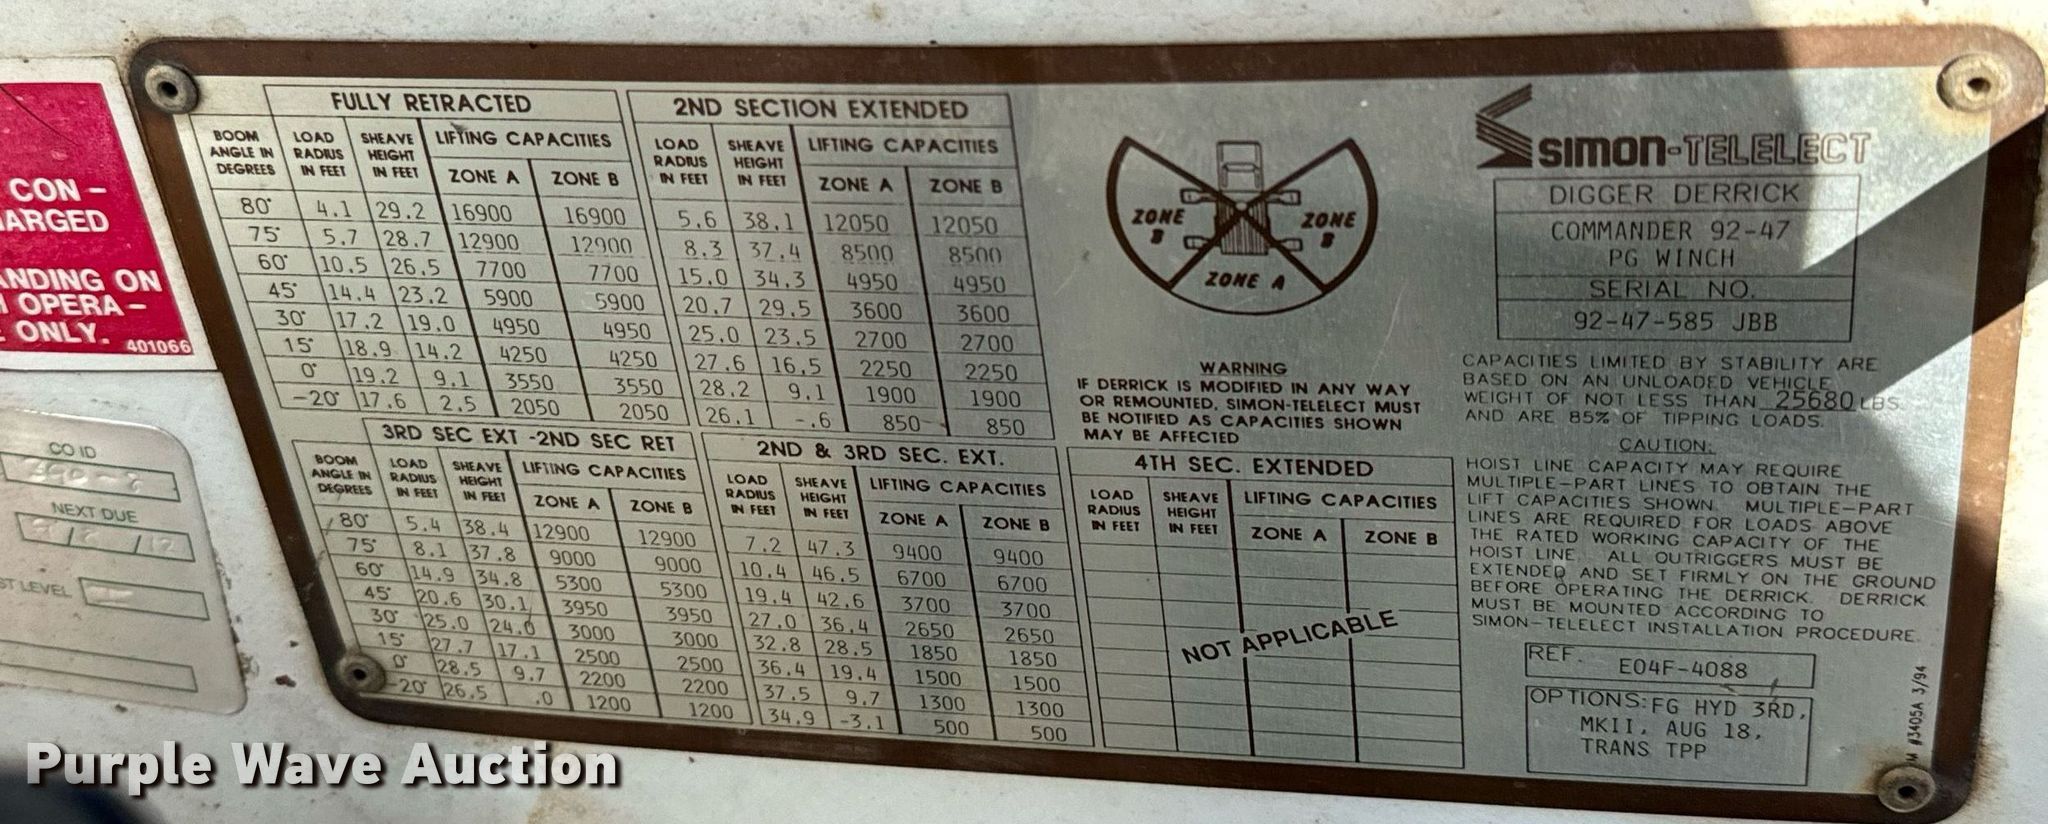 CON -
HARGED
ANDING ON
OPERA -
ONLY. 401066
CO ID
NEXT DUE
ST LEVEL
FULLY RETRACTED
BOOM ANGLE IN DEGREES LOAD RADIUS IN FEET SHEAVE HEIGHT IN FEET LIFTING CAPACITIES
ZONE A ZONE B
80° 4.1 29.2 16900 16900
75° 5.7 28.7 12900 12900
60° 10.5 26.5 7700 7700
45° 14.4 23.2 5900 5900
30° 17.2 19.0 4950 4950
15° 18.9 14.2 4250 4250
0° 19.2 9.1 3550 3550
-20° 17.6 2.5 2050 2050
2ND SECTION EXTENDED
LOAD RADIUS IN FEET SHEAVE HEIGHT IN FEET LIFTING CAPACITIES
ZONE A ZONE B
5.6 38.1 12050 12050
8.3 37.4 8500 8500
15.0 34.3 4950 4950
20.7 29.5 3600 3600
25.0 23.5 2700 2700
27.6 16.5 2250 2250
28.2 9.1 1900 1900
26.1 -.6 850 850
3RD SEC EXT -2ND SEC RET
BOOM ANGLE IN DEGREES LOAD RADIUS IN FEET SHEAVE HEIGHT IN FEET LIFTING CAPACITIES
ZONE A ZONE B
80° 5.4 38.4 12900 12900
75° 8.1 37.8 9000 9000
60° 14.9 34.8 5300 5300
45° 20.6 30.1 3950 3950
30° 25.0 24.0 3000 3000
15° 27.7 17.1 2500 2500
0° 28.5 9.7 2200 2200
-20° 26.5 .0 1200 1200
2ND & 3RD SEC. EXT.
LOAD RADIUS IN FEET SHEAVE HEIGHT IN FEET LIFTING CAPACITIES
ZONE A ZONE B
7.2 47.3 9400 9400
10.4 46.5 6700 6700
19.4 42.6 3700 3700
27.0 36.4 2650 2650
32.8 28.5 1850 1850
36.4 19.4 1500 1500
37.5 9.7 1300 1300
34.9 -3.1 500 500
4TH SEC. EXTENDED
LOAD RADIUS IN FEET SHEAVE HEIGHT IN FEET LIFTING CAPACITIES
ZONE A ZONE B
NOT APPLICABLE
ZONE B
ZONE B
ZONE A
WARNING
IF DERRICK IS MODIFIED IN ANY WAY
OR REMOUNTED, SIMON-TELELECT MUST
BE NOTIFIED AS CAPACITIES SHOWN
MAY BE AFFECTED
SIMON-TELELECT
DIGGER DERRICK
COMMANDER 92-47
PG WINCH
SERIAL NO.
92-47-585 JBB
CAPACITIES LIMITED BY STABILITY ARE
BASED ON AN UNLOADED VEHICLE
WEIGHT OF NOT LESS THAN 25680 LBS
AND ARE 85% OF TIPPING LOADS.
CAUTION:
HOIST LINE CAPACITY MAY REQUIRE
MULTIPLE-PART LINES TO OBTAIN THE
LIFT CAPACITIES SHOWN. MULTIPLE-PART
LINES ARE REQUIRED FOR LOADS ABOVE
THE RATED WORKING CAPACITY OF THE
HOIST LINE. ALL OUTRIGGERS MUST BE
EXTENDED AND SET FIRMLY ON THE GROUND
BEFORE OPERATING THE DERRICK. DERRICK
MUST BE MOUNTED ACCORDING TO
SIMON-TELELECT INSTALLATION PROCEDURE.
REF. E04F-4088
OPTIONS: FG HYD 3RD,
MKII, AUG 18,
TRANS TPP
#3405A 3/94
Purple Wave Auction